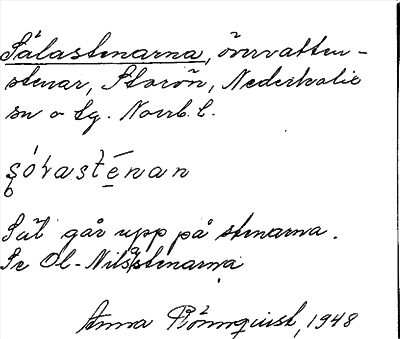 Sälastenarna, övervattens-
stenar, Storön, Nederkalix
sn o tg. Norrb. l.
só̜ƚastēnan
Säl går upp på stenarna.
Se Ol-Nilsastenarna
Anna Rönnquist, 1948